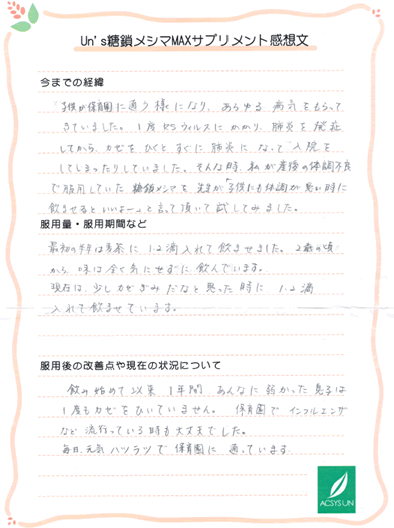 Un's糖鎖メシマMAXサプリメント感想文
今までの経緯
子供が保育園に通う様になり、あらゆる病気をもらって
きていました。1度RSウィルスにかかり、肺炎を発症
してから、カゼをひくとすぐに肺炎になって入院を
してしまったりしていました。そんな時、私が産後の体調不良
で服用していた糖鎖メシマを先生が「子供にも体調が悪い時に
飲ませるといいよー」と言って頂いて試してみました。
服用量・服用期間など
最初の頃は麦茶に1.2滴入れて飲ませました。2歳の頃
から、味は全く気にせずに飲んでいます。
現在は、少しカゼぎみだなと思った時に1.2滴
入れて飲ませています。
服用後の改善点や現在の状況について
飲み始めて以来1年間あんなに弱かった息子は
1度もカゼをひいていません。保育園でインフルエンザ
など流行っている時も大丈夫でした。
毎日、元気ハツラツで保育園に通っています。
ACSYSUN